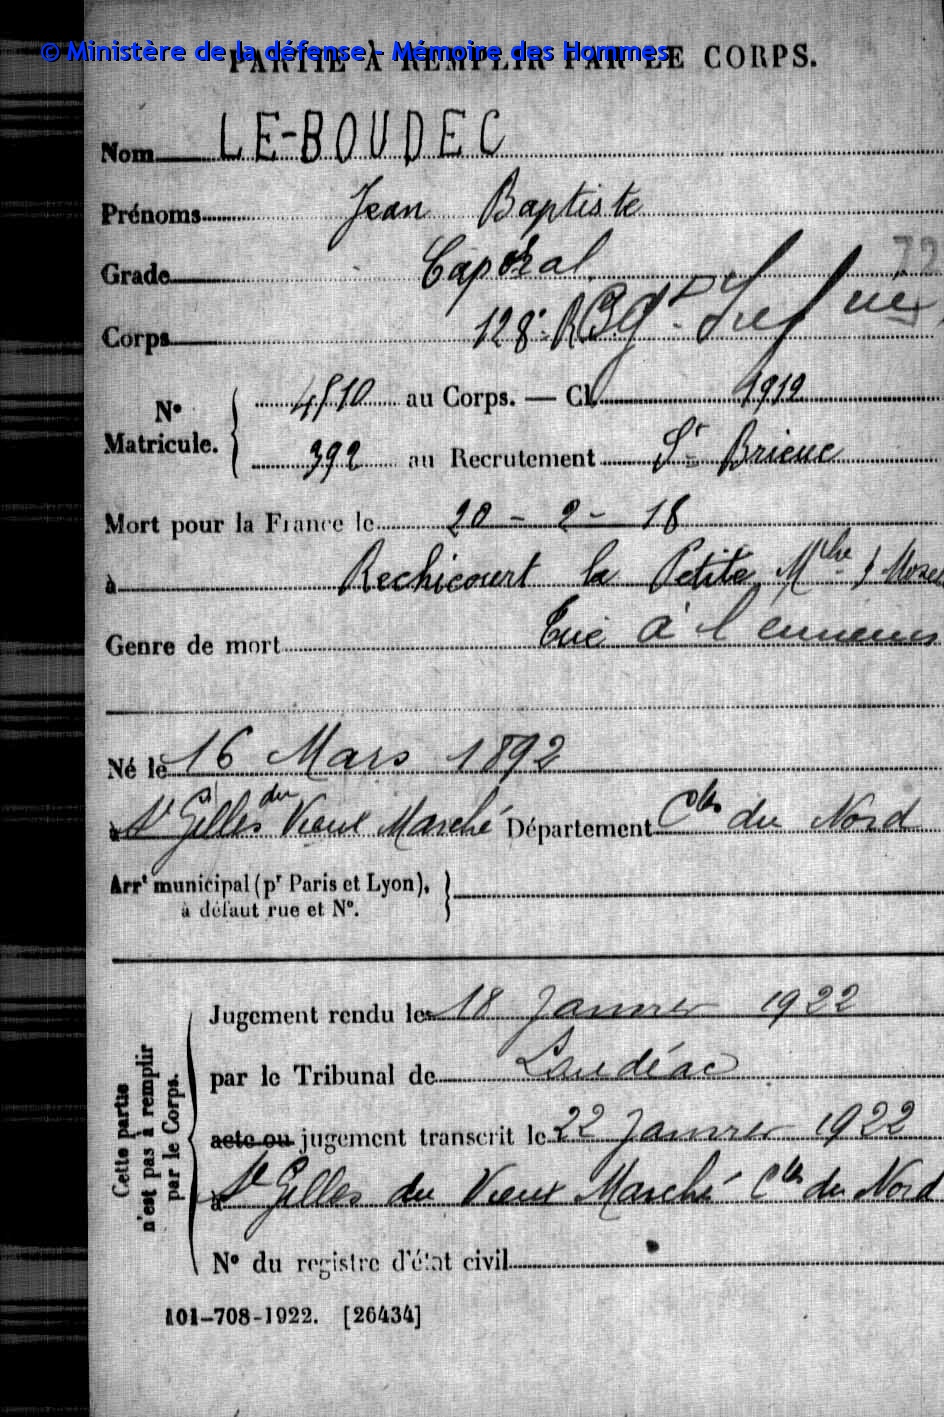 © Ministère de la défense - Mémoire des Hommes
PARTIE À REMPLIR PAR LE CORPS.
Nom LE-BOUDEC
Prénoms Jean Baptiste
Grade Caporal
72
Corps 128e
No Matricule. 4510 au Corps. — Cl. 1912
392 au Recrutement St Brieuc
Mort pour la France le 20 - 2 - 18
à Rechicourt la Petite Mthe / Mosel
Genre de mort Tué à l'ennemi
Né le 16 Mars 1892
à St Gilles du Vieux Marché Département Ctes du Nord
Arrt municipal (pr Paris et Lyon),
à défaut rue et No.
Cette partie
n'est pas à remplir
par le Corps.
Jugement rendu le 18 Janvier 1922
par le Tribunal de Loudéac
acte ou jugement transcrit le 22 Janvier 1922
à St Gilles du Vieux Marché Ctes du Nord
No du registre d'état civil
101-708-1922. [26434]